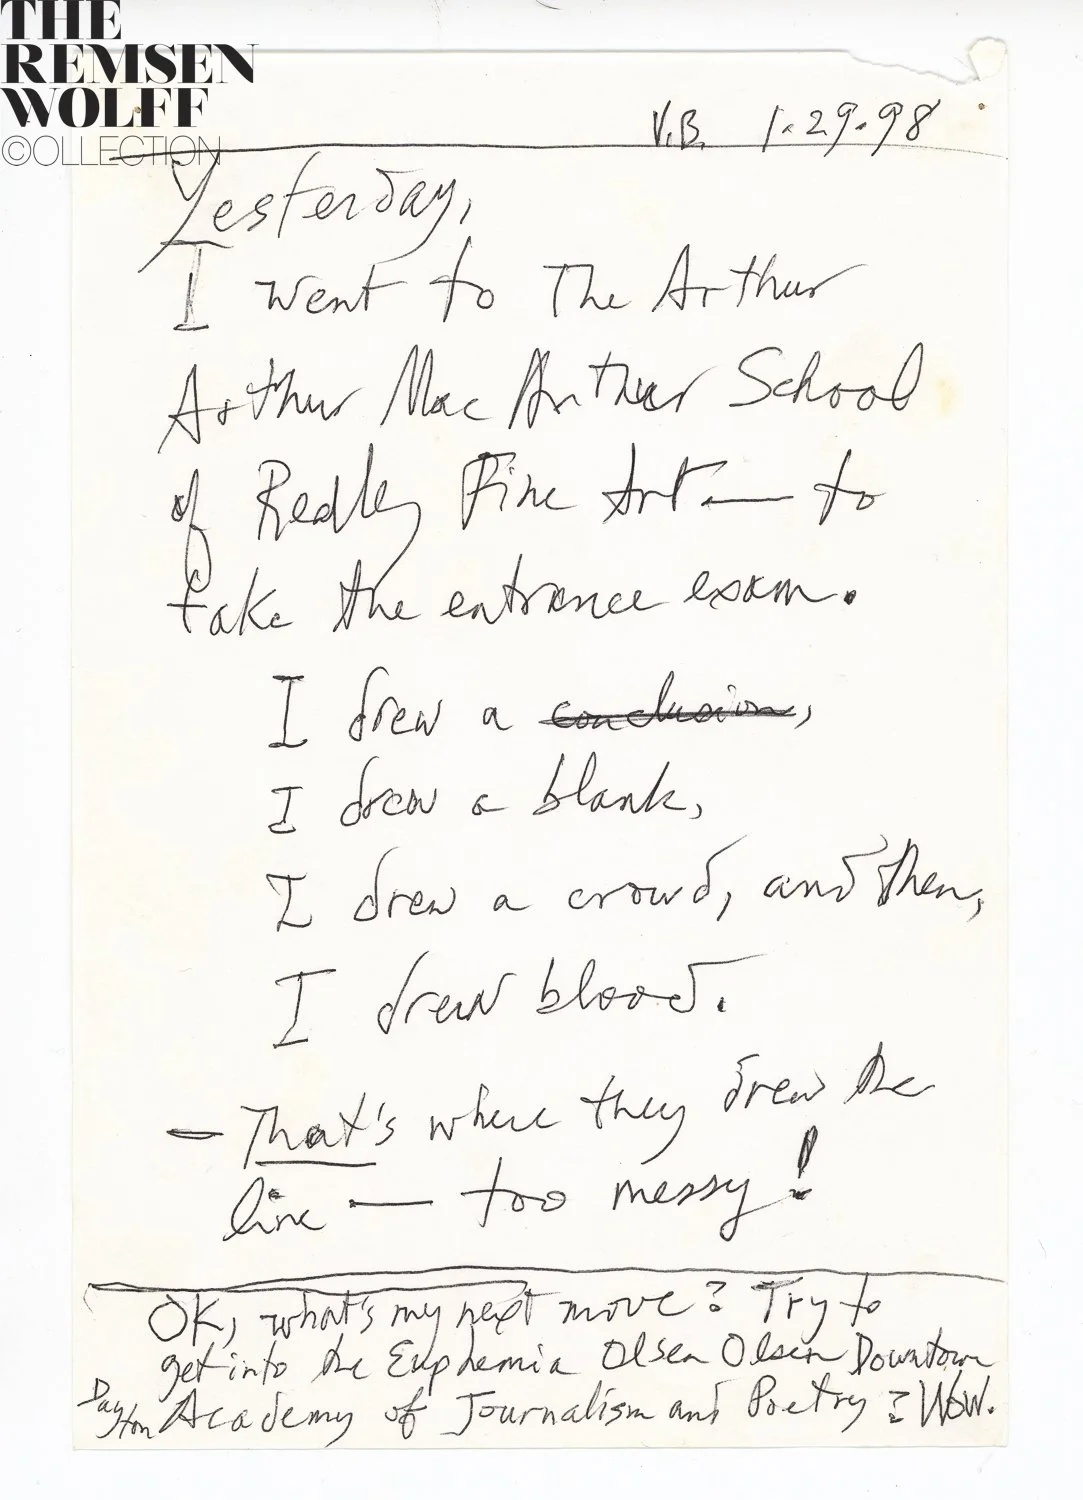 THE
REMSEN
WOLFF
©OLLECTION
V.B. 1-29-98
Yesterday,
I went to The Arthur
Arthur Mac Arthur School
of Redley Fine Art — to
take the entrance exam.
I drew a conclusion,
I drew a blank,
I drew a crowd, and then,
I drew blood.
— That's where they drew the
line — too messy!
OK, what's my next move? Try to
get into the Euphemia Olsen Olsen Downtown
Dayton Academy of Journalism and Poetry? WOW.